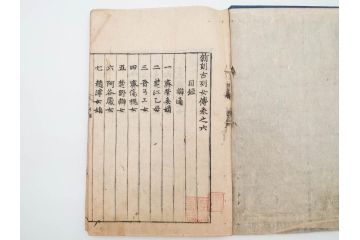 新刻古列女傳卷之六
目錄
辯通
一 齊管妾婧
二 楚江乙母
三 晉弓工女
四 齊傷槐女
五 楚野辯女
六 阿谷處女
七 趙津女娟